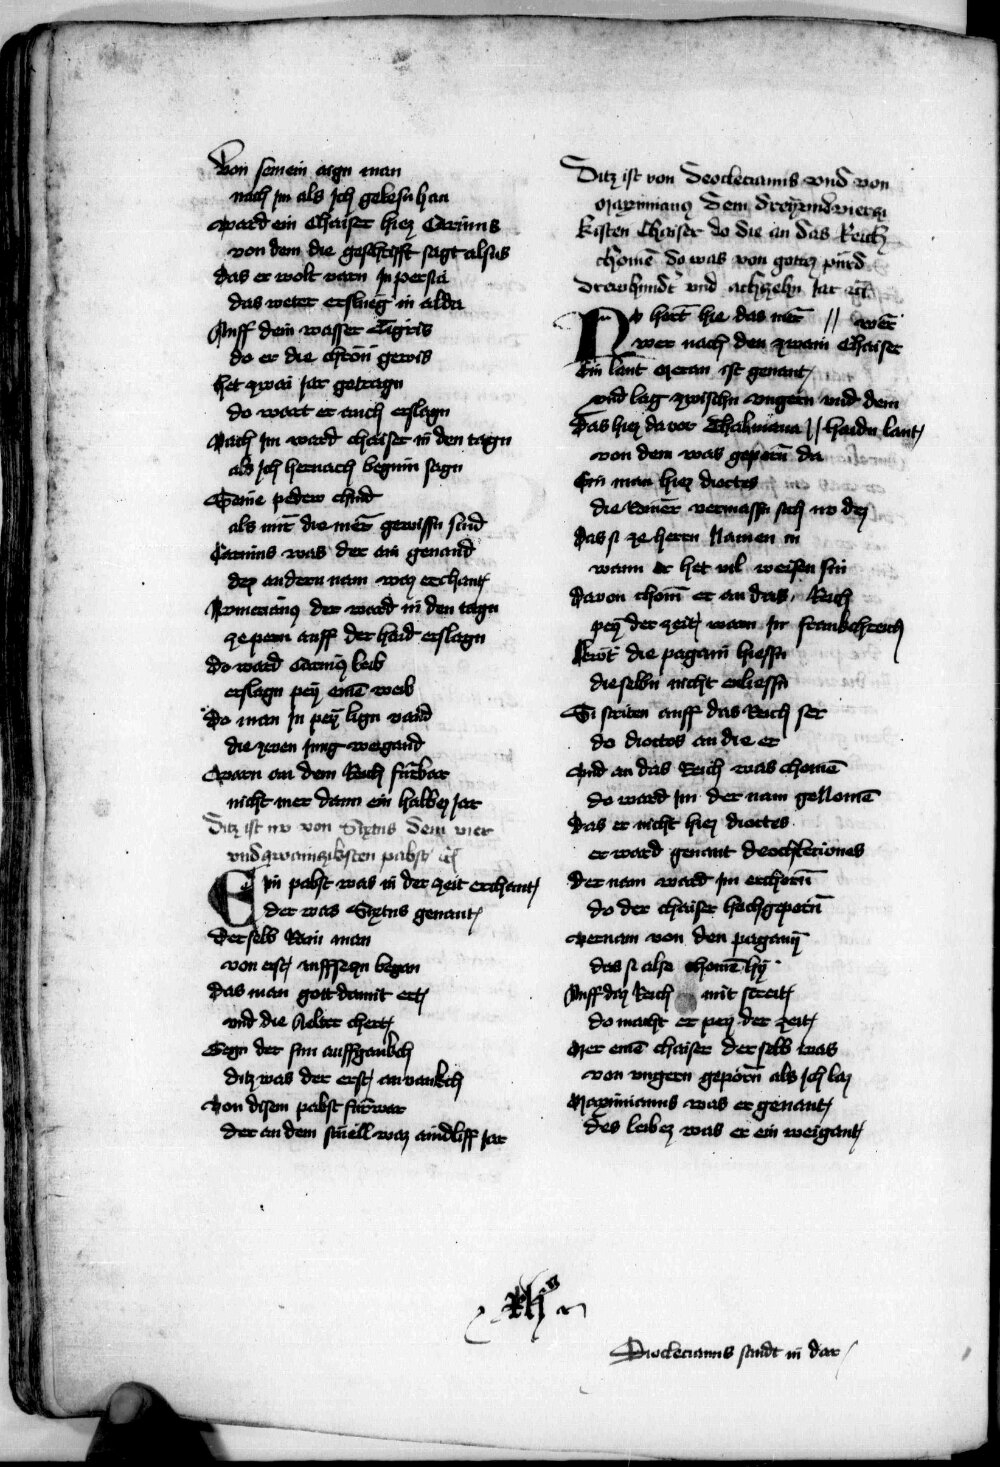 Von seinein aign man
nach im als Ich gelesn han
ward ein Chaiser hiez Carinus
von dem die geschrifft sagt alsus
das er wolt varn in persia
das weter erslueg in alda
Auff dem wasser Tigris
do er die chron gewis
het zwai jar getragn
do wart er auch erslagn
Nach im ward chaiser in den tagn
als ich hernach beginn sagn
Seine pedew chind
als mir die mer gewissn sind
Carinus was der ain genand
dez andern nam waz erchant
Numerianus der ward in den tagn
ze pern auff der haid erslagn
do ward Carinus leib
erslagn pey eine weib
do man in pey lign vand
die zwen jung weigand
Warn an dem Reich furbar
nicht mer dann ein halbez jar
Ditz ist nv von Sixtus dem vier
vndzwainzikisten pabst
Ein pabst was in der zeit erchant
der was Sixtus genant
derselb Rain man
von erst auffsezn began
das man gott damit ert
vnd die Aelter chert
Gegn der sun auffgankch
ditz was der erst anvankch
Von disem pabst furwar
der an dem stuell waz aindliff jar
Ditz ist von Deoclecianus vnd von
Maximianus dem dreyundvierzi
kisten Chaiser do die an das Reich
chome do was von gottez purd
drewhundt vnd achzehn jar
Nv hort hie das mer // wer
wer nach den zwain Chaiser
Ein lant meran ist genant
vnd lag zwischn vngern vnd dem
das hiez da vor Thalmania // haidn lant
von dem was geporn da
Ein man hiez dioctes
die Romer vermassn sich no dez
das si ze herrn Namen in
wann er het vil weisen sin
davon chom er an das Reich
pey der zeit warn in frankchreich
lewt die pagani hiessn
dieselbn nicht enliessn
Si striten auff das Reich ser
do dioctes an die er
vnd an das Reich was chome
do ward im der nam genome
das er nicht hiez dioctes
er ward genant deoclecianes
der nam ward im erchorn
do der chaiser hochgeporn
vernam von den pagany
das si also chome hy
Auff daz Reich mit streit
do macht er pey der zeit
Mer eine chaiser derselb was
von vngern geporn als ich laz
Maximianus was er genant
des leibez was er ein weigant
Dioclecianus sandt in dar